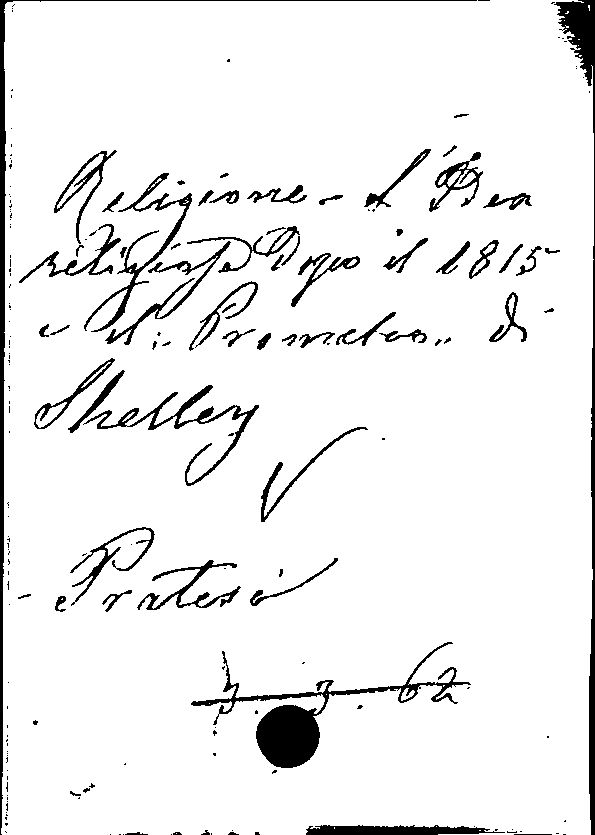 Religione - L'Idea
religiosa Dopo il 1815
e il: "Prometeo" di
Shelley
Pratesi
3. 3. 62